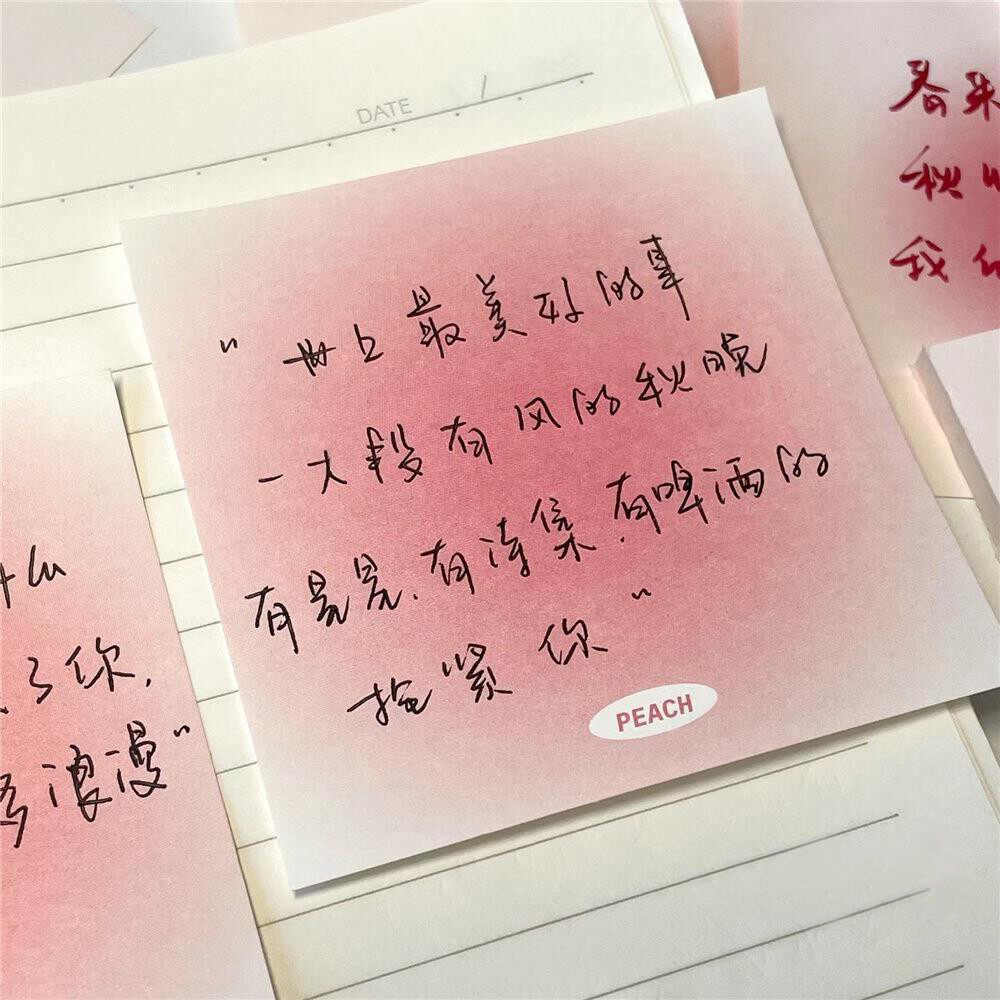 DATE /
春来
秋
我
"世上最美好的事
一大段有风的秋晚
有晃晃.有连集.有啤酒的
抱紧你"
PEACH
什么
了你,
浪漫"